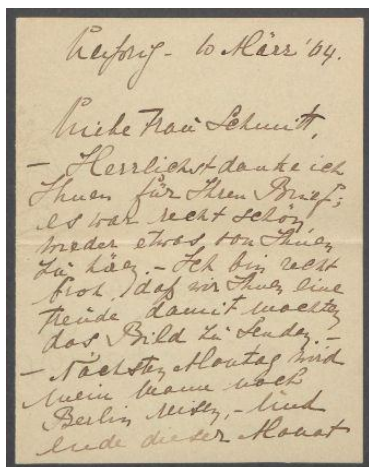 Leipzig - 10 März '04.
Liebe Frau Schmitt,
- Herrlichst danke ich
Ihnen für Ihren Brief;
es war recht schön
wieder etwas von Ihnen
zu hören. - Ich bin recht
froh, daß wir Ihnen eine
Freude damit machten
das Bild zu senden. -
- Nächsten Montag wird
mein Mann nach
Berlin reisen, - und
ende dieser Monat